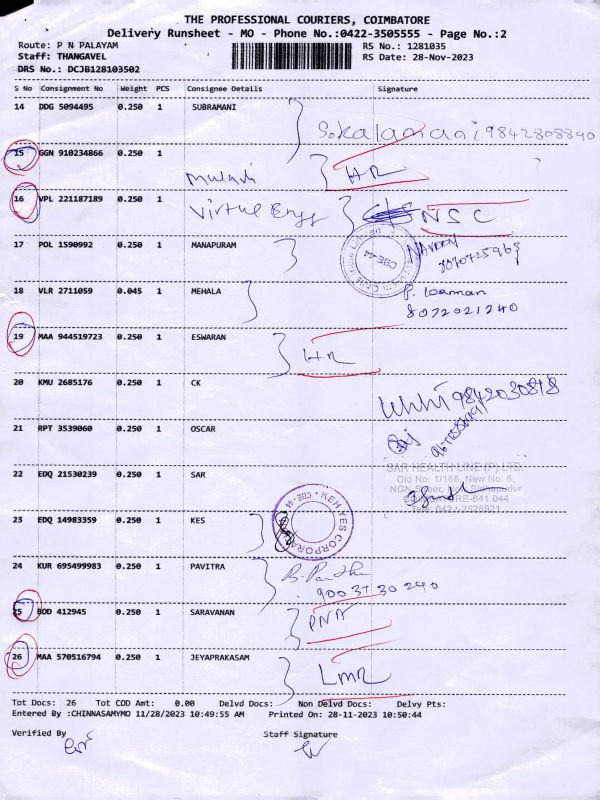 THE PROFESSIONAL COURIERS, COIMBATORE
Delivery Runsheet - MO - Phone No.:0422-3505555 - Page No.:2
Route: P N PALAYAM RS No.: 1281035
Staff: THANGAVEL RS Date: 28-Nov-2023
DRS No.: DCJB128103502
S No Consignment No Weight PCS Consignee Details Signature
14 DDG 5094495 0.250 1 SUBRAMANI
9842808890
15 GGN 910234866 0.250 1
HR
16 VPL 221187189 0.250 1 Virtue Engg NSC
17 POL 1590992 0.250 1 MANAPURAM
CBE-44
18 VLR 2711059 0.045 1 MEHALA
8072021240
19 MAA 944519723 0.250 1 ESWARAN
HR
20 KMU 2685176 0.250 1 CK
9842030818
21 RPT 3539060 0.250 1 OSCAR
22 EDQ 21530239 0.250 1 SAR
SAR HEALTH LINE (P) LTD.
Old No: 1/188, New No: 6,
COIMBATORE-641 044
23 EDQ 14983359 0.250 1 KES
KEH YES CORPORA CBE-44
24 KUR 695499983 0.250 1 PAVITRA
900 37 30 240
25 BOD 412945 0.250 1 SARAVANAN
PNA
26 MAA 570516794 0.250 1 JEYAPRAKASAM
LMR
Tot Docs: 26 Tot COD Amt: 0.00 Delvd Docs: Non Delvd Docs: Delvy Pts:
Entered By :CHINNASAMYMO 11/28/2023 10:49:55 AM Printed On: 28-11-2023 10:50:44
Verified By Staff Signature